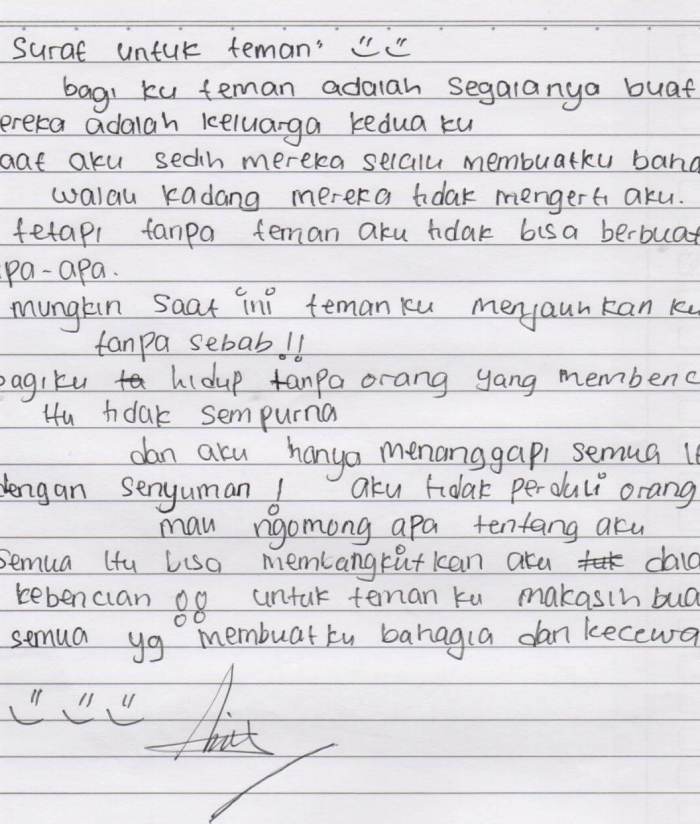 Surat untuk teman²
bagi ku teman adalah segalanya buat
ereka adalah keluarga kedua ku
aat aku sedih mereka selalu membuatku baha
walau kadang mereka tidak mengerti aku.
tetapi tanpa teman aku tidak bisa berbuat
pa-apa.
mungkin saat ini teman ku menjauhkan ku
tanpa sebab !!
bagiku ta hidup tanpa orang yang membenc
itu tidak sempurna
dan aku hanya menanggapi semua it
dengan senyuman ! aku tidak perduli orang
mau ngomong apa tentang aku
semua itu bisa membangkitkan aku dala
kebencian !! untuk teman ku makasih bua
semua yg membuat ku bahagia dan kecewa